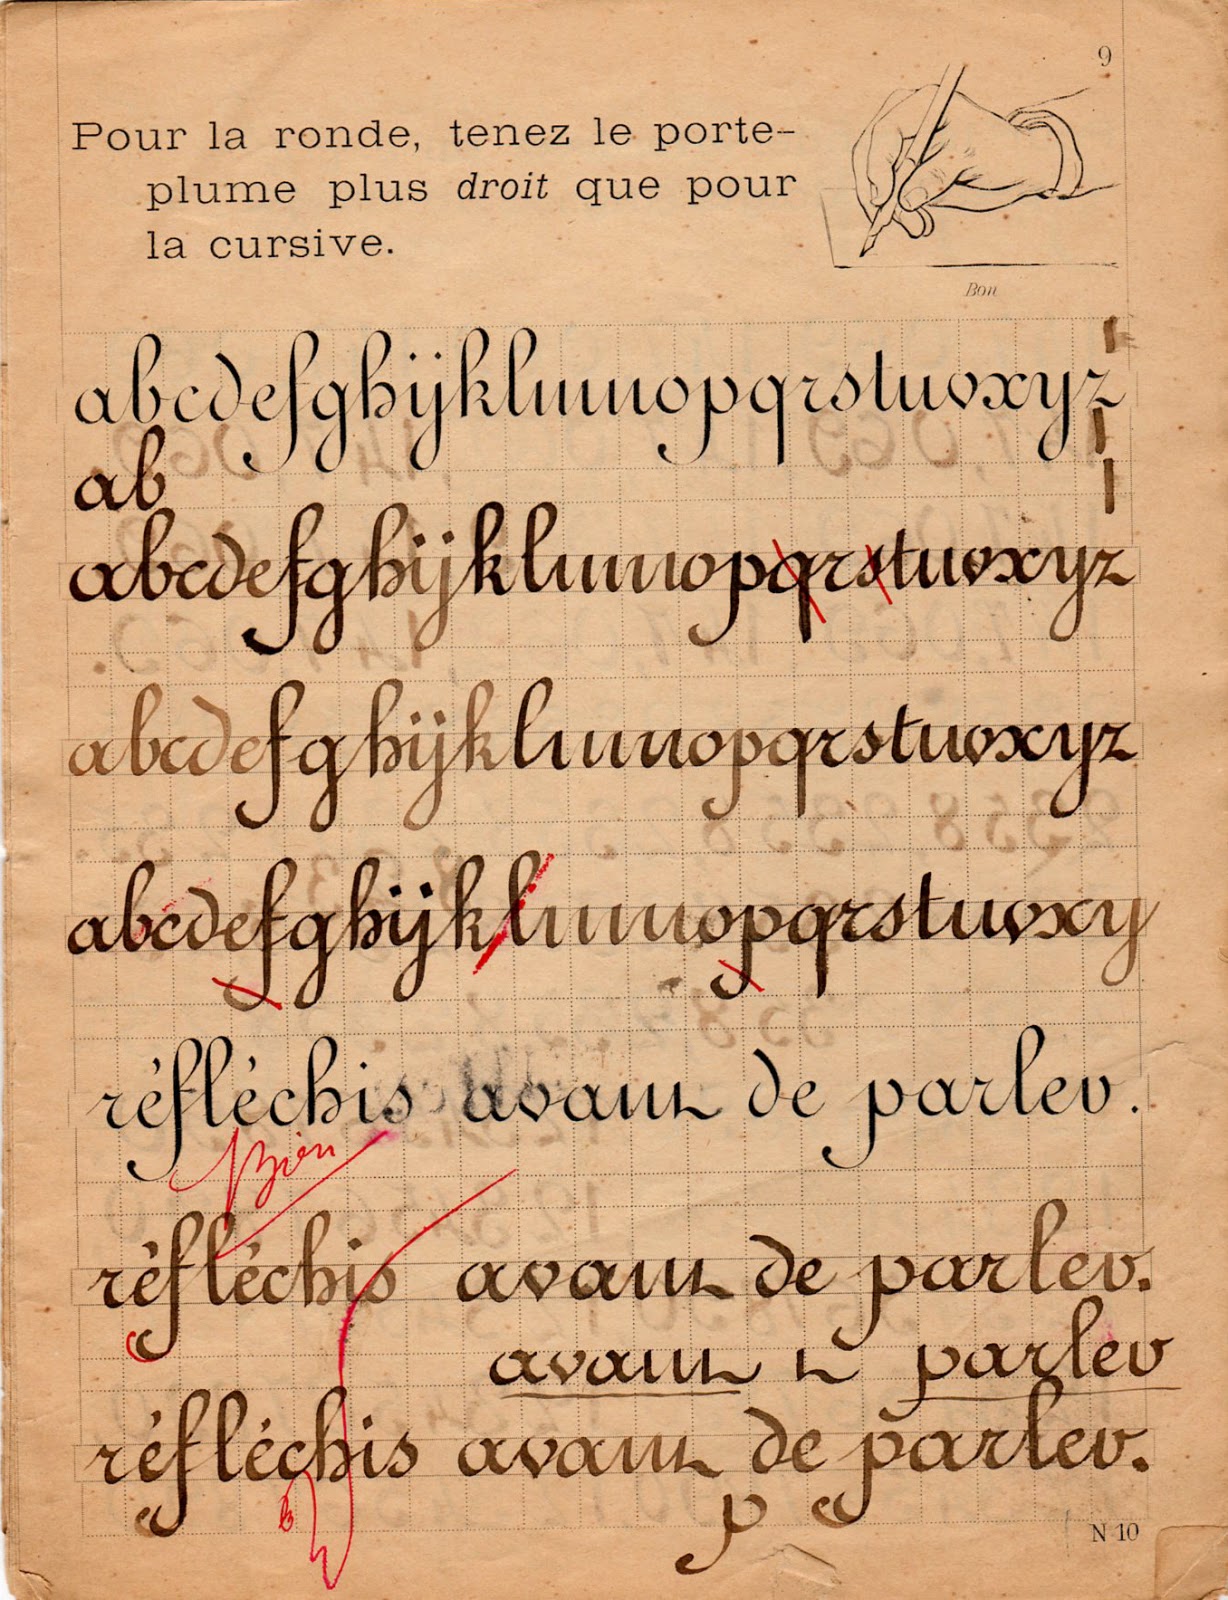 9
Pour la ronde, tenez le porte-
plume plus droit que pour
la cursive.
Bon
abcdefghijklmnopqrstuvxyz
ab
abcdefghijklmnopqrstuvxyz
abcdefghijklmnopqrstuvxyz
abcdefghijklmnopqrstuvxy
réfléchis avant de parler.
Bien
réfléchis avant de parler.
avant t parler
réfléchis avant de parler.
p
N 10